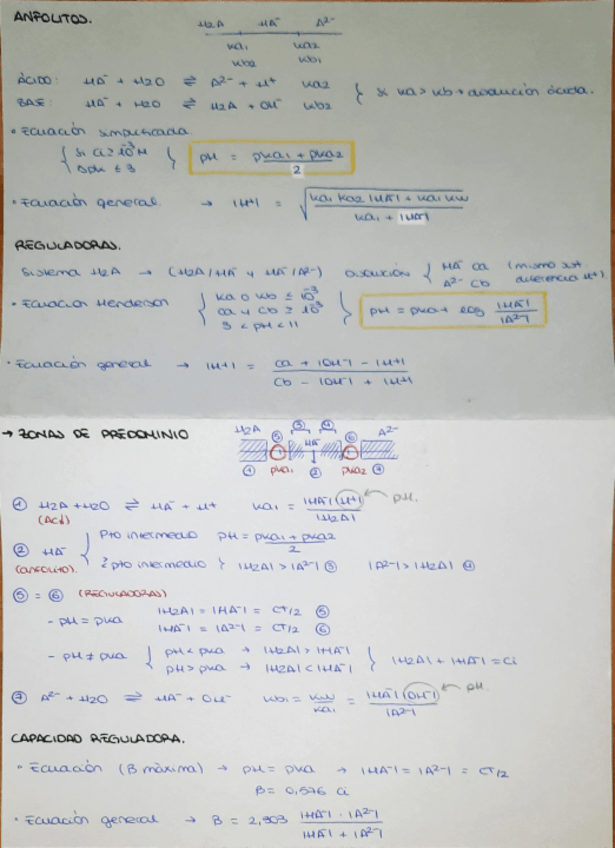 ANFOLITOS.
H2A HA⁻ A²⁻
Ka1 Ka2
Kb2 Kb1
ÁCIDO: HA⁻ + H2O ⇌ A²⁻ + H⁺ Ka2
BASE: HA⁻ + H2O ⇌ H2A + OH⁻ Kb2 } Si Ka > Kb → disolución ácida.
• Ecuación simplificada
{ Si Ci ≥ 10⁻³ M
ΔpK ≤ 3 } pH = (pKa1 + pKa2)/2
• Ecuación general. → |H⁺| = √((Ka1 Ka2 |HA⁻| + Ka1 Kw)/(Ka1 + |HA⁻|))
REGULADORAS.
Sistema H2A → (H2A/HA⁻ y HA⁻/A²⁻) Disolución { HA⁻ Ca (mismo sist
A²⁻ Cb diferencia H⁺)
• Ecuación Henderson { Ka o Kb ≤ 10⁻³
Ca y Cb ≥ 10⁻³
3 < pH < 11 } pH = pKa + log |HA⁻|/|A²⁻|
• Ecuación general → |H⁺| = (Ca + |OH⁻| - |H⁺|)/(Cb - |OH⁻| + |H⁺|)
→ ZONAS DE PREDOMINIO
H2A ⑤ ③ ④ HA⁻ ⑥ A²⁻
① pKa1 ② pKa2 ⑦
① H2A + H2O ⇌ HA⁻ + H⁺ Ka1 = |HA⁻| |H⁺|/|H2A| ← pH.
(Acd)
② HA⁻ { Pto intermedio pH = (pKa1 + pKa2)/2
(anfolito). ≠ pto intermedio } |H2A| > |A²⁻| ③ |A²⁻| > |H2A| ④
⑤ = ⑥ (REGULADORAS)
- pH = pKa |H2A| = |HA⁻| = CT/2 ⑤
|HA⁻| = |A²⁻| = CT/2 ⑥
- pH ≠ pKa { pH < pKa → |H2A| > |HA⁻|
pH > pKa → |H2A| < |HA⁻| } |H2A| + |HA⁻| = Ci
⑦ A²⁻ + H2O ⇌ HA⁻ + OH⁻ Kb1 = Kw/Ka1 = |HA⁻| |OH⁻|/|A²⁻| ← pH.
CAPACIDAD REGULADORA.
• Ecuación (B máxima) → pH = pKa → |HA⁻| = |A²⁻| = CT/2
B = 0,576 Ci
• Ecuación general → B = 2,303 |HA⁻| · |A²⁻|/|HA⁻| + |A²⁻|